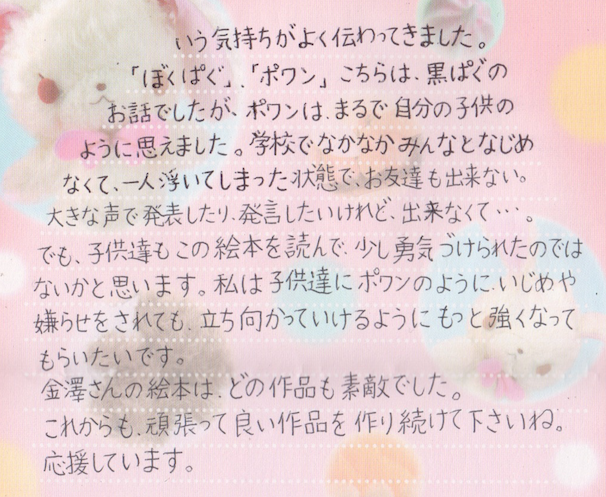 いう気持ちがよく伝わってきました。
「ぼくぱぐ」、「ポワン」こちらは、黒ぱぐの
お話でしたが、ポワンは、まるで自分の子供の
ように思えました。学校でなかなかみんなとなじめ
なくて、一人浮いてしまった状態で、お友達も出来ない。
大きな声で発表したり、発言したいけれど、出来なくて…。
でも、子供達もこの絵本を読んで、少し勇気づけられたのでは
ないかと思います。私は子供達にポワンのように、いじめや
嫌らせをされても、立ち向かっていけるようにもっと強くなって
もらいたいです。
金澤さんの絵本は、どの作品も素敵でした。
これからも、頑張って良い作品を作り続けて下さいね。
応援しています。